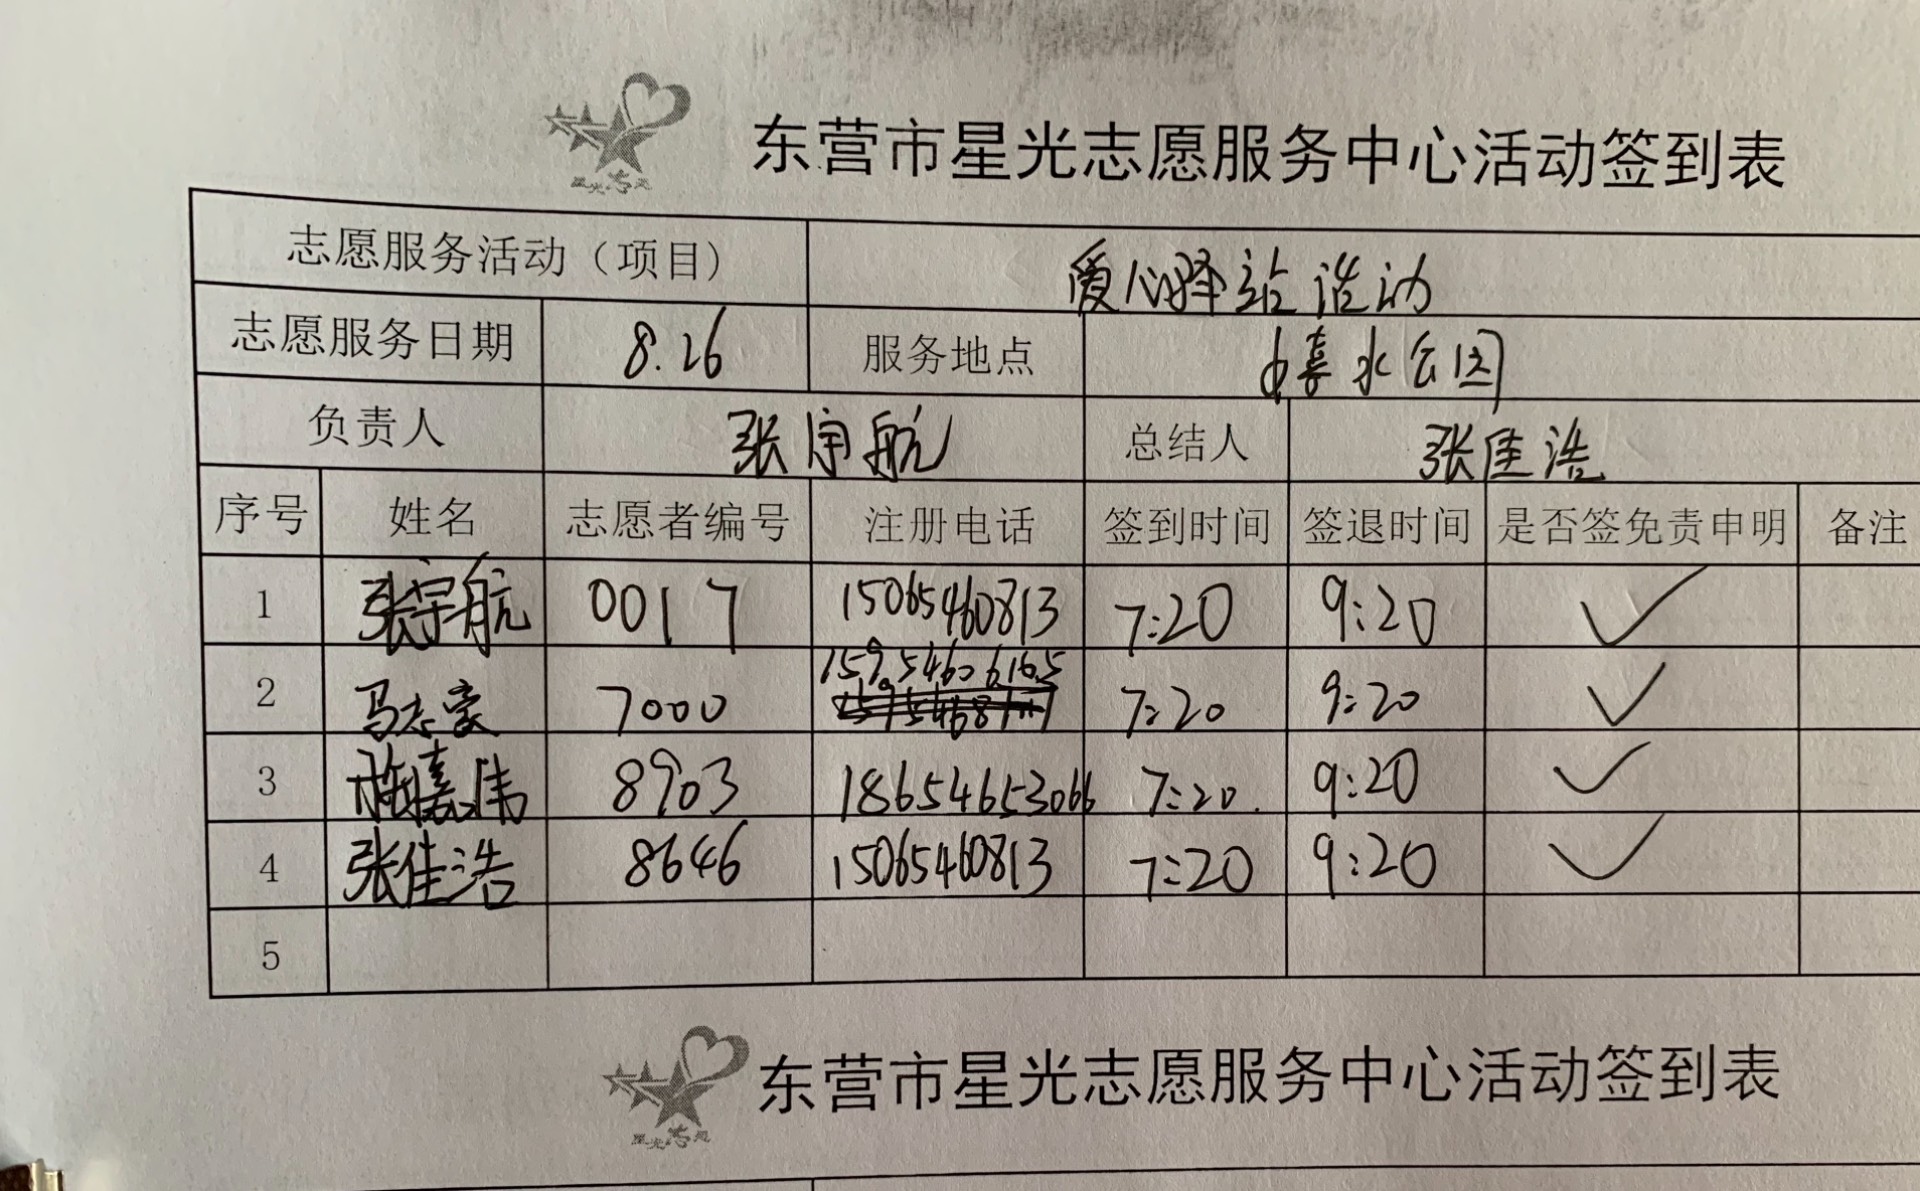 星光志愿
东营市星光志愿服务中心活动签到表
志愿服务活动（项目） 爱心驿站活动
志愿服务日期 8.26 服务地点 水公园
负责人 张宇航 总结人 张佳浩
序号 姓名 志愿者编号 注册电话 签到时间 签退时间 是否签免责申明 备注
1 张宇航 0017 15065460813 7:20 9:20 ✓
2 马志豪 7000 15954606165 7:20 9:20 ✓
3 嘉伟 8903 18654653066 7:20 9:20 ✓
4 张佳浩 8646 15065460813 7:20 9:20 ✓
5
星光志愿
东营市星光志愿服务中心活动签到表